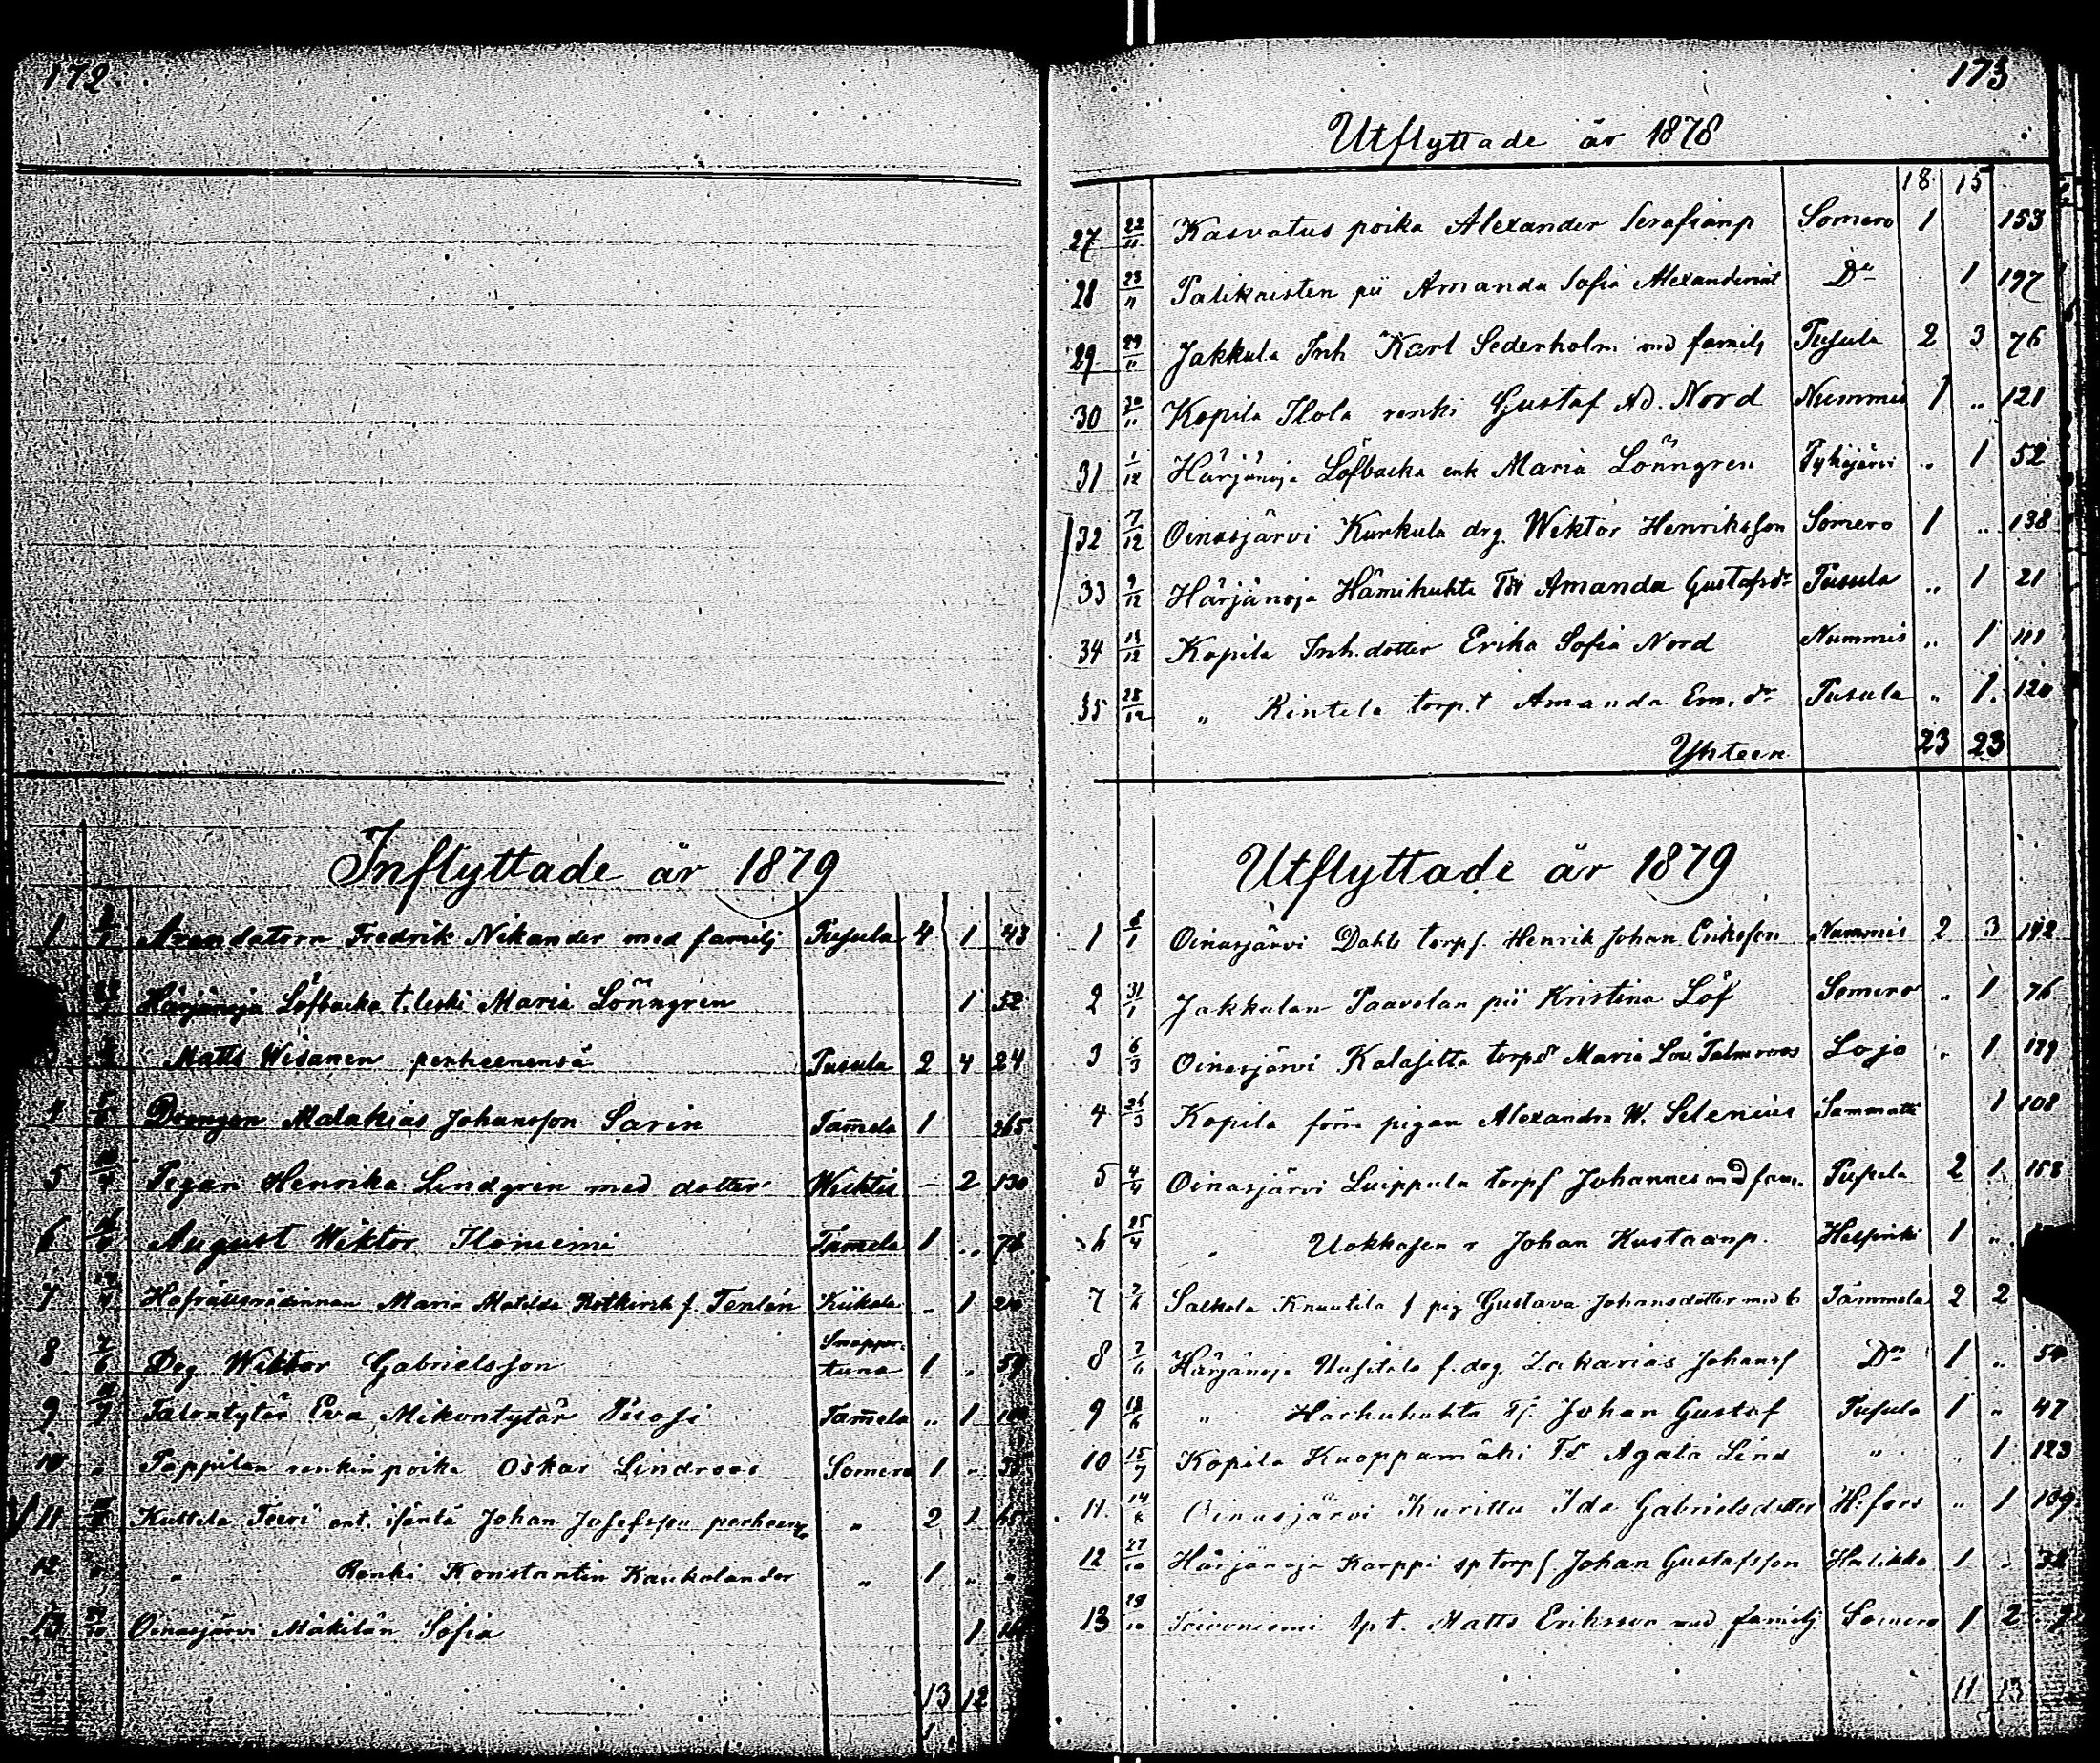 172
Inflyttade år 1879
1 Arendatorn Fredrik Nikander med familj Pusula 4 1 43
Härjänoja Löfbacka t. leski Maria Lönngren 1 52
Matts Wisanen perheenensä Pusula 2 4 24
4 Drengen Malakias Johansson Sarin Tam̄ela 1 265
5 Pigan Henrika Lindgren med dotter Wichtis – 2 130
6 August Wiktor Iloniemi Tam̄ela 1 „ 76
7 Maria Matilda Rotkirch f. Tenlén Kiikala „ 1
8 7/6 Drg Wiktor Gabrielsson Snappertuna 1 „
9 Talontytär Eva Mikontytär Tam̄ela „ 1
10 Pappilan renkinpoika Oskar Lindroos Somero 1 „
11 Kuttila ent. isäntä Johan Josefsson „ 2 1
12 „ Renki Konstantin Kaukolander „ 1 „ „
13 Oinasjärvi Mäkilän Sofia 1
13 12
173
Utflyttade år 1878
18 15
27 22/11 Kasvatus poika Alexander Serafianp Somero 1 153
28 23/11 Palikaisten pii Amanda Sofia Do 1 197
29 29/11 Jakkula Inh Karl Sederholm med familj Pusula 2 3 76
30 30/11 Kopila Ilola renki Gustaf Ad. Nord Nummis 1 „ 121
31 1/12 Härjänoja Löfbacka enk Maria Lönngren Pyhäjärvi „ 1 52
32 7/12 Oinasjärvi Kurkula drg. Wiktor Henriksson Somero 1 „ 138
33 9/12 Härjänoja Amanda Gustafsdr Pusula „ 1 21
34 Kopila Inh. dotter Erika Sofia Nord Nummis „ 1 111
35 28/12 „ Kintela torp.t Amanda Em. dr Pusula „ 1. 120
Yhteen 23 23
Utflyttade år 1879
1 8/1 Oinasjärvi Dahls torps. Henrik Johan Eriksson Nummis 2 3 142
2 31/1 Jakkulan Paavolan pii Kristina Löf Somero „ 1 76
3 6/3 Oinasjärvi torpdr Maria Lov. Palmroos Lojo „ 1
4 26/3 Kopila förra pigan Alexandra W. Selenius Sammatti 1 108
5 4/4 Oinasjärvi Luippula torps Johannes med fam. Pusula 2 1. 158
6 25/4 „ Uokkasen r Johan Kustaanp. Helsinki 1 „
7 7/6 Salkola Knuutila f pig Gustava Johansdotter med b Tammela 2 2
8 7/6 Härjänoja f. drg. Zakarias Johanss Do 1 „ 54
9 18/6 „ Johan Gustaf Pusula 1 „ 47
10 15/7 Kopila Kuoppamäki T.d. Agata Lind „ „ 1 123
11. 14/8 Oinasjärvi Kurittu Ida Gabrielsdotter H:fors „ 1 139
12 27/10 Härjänoja Karppi sp torps Johan Gustafsson Halikko 1 „
13 29/10 Toivoniemi spt. Matts Eriksson med familj Somero 1 2
11 13